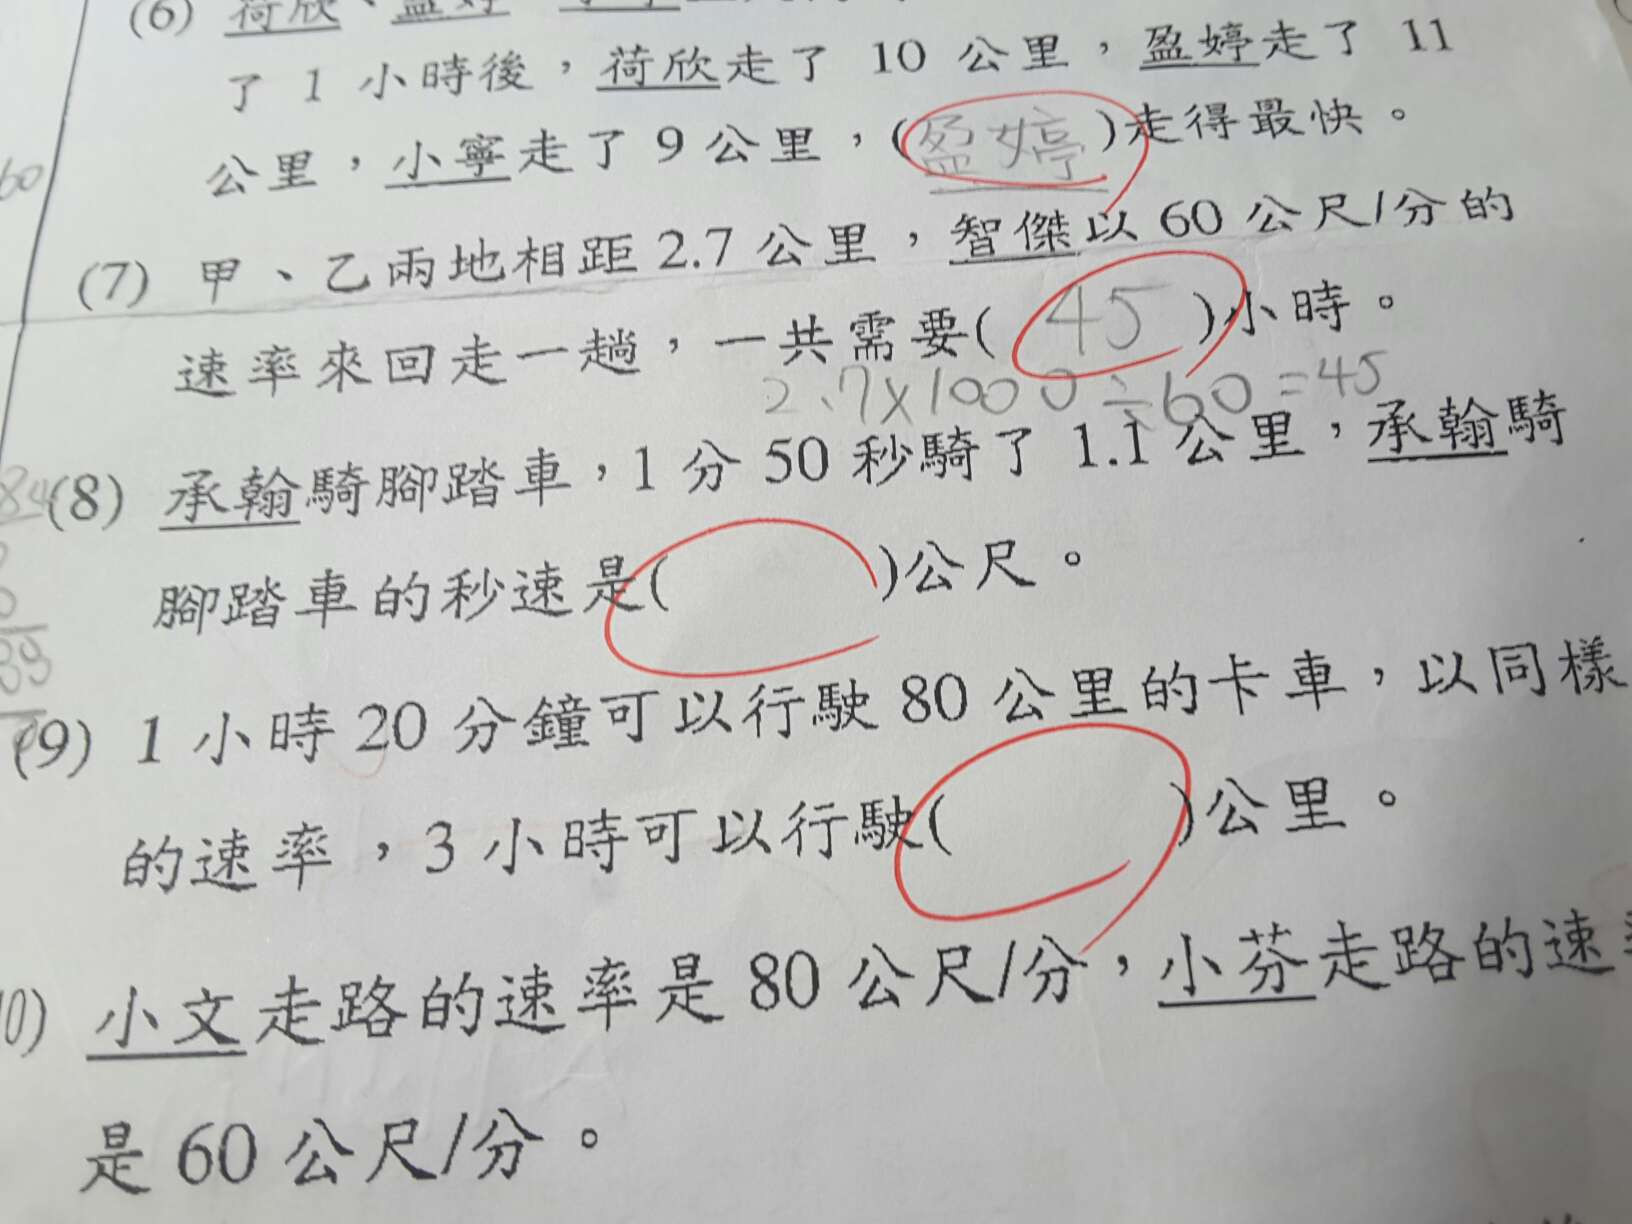 (6) 荷欣、盈婷
了 1 小時後，荷欣走了 10 公里，盈婷走了 11
公里，小寧走了 9 公里，(盈婷)走得最快。
60
(7) 甲、乙兩地相距 2.7 公里，智傑以 60 公尺/分的
速率來回走一趟，一共需要( 45 )小時。
2.7×1000÷60=45
84
(8) 承翰騎腳踏車，1 分 50 秒騎了 1.1 公里，承翰騎
腳踏車的秒速是( )公尺。
39
(9) 1 小時 20 分鐘可以行駛 80 公里的卡車，以同樣
的速率，3 小時可以行駛( )公里。
0) 小文走路的速率是 80 公尺/分，小芬走路的速
是 60 公尺/分。